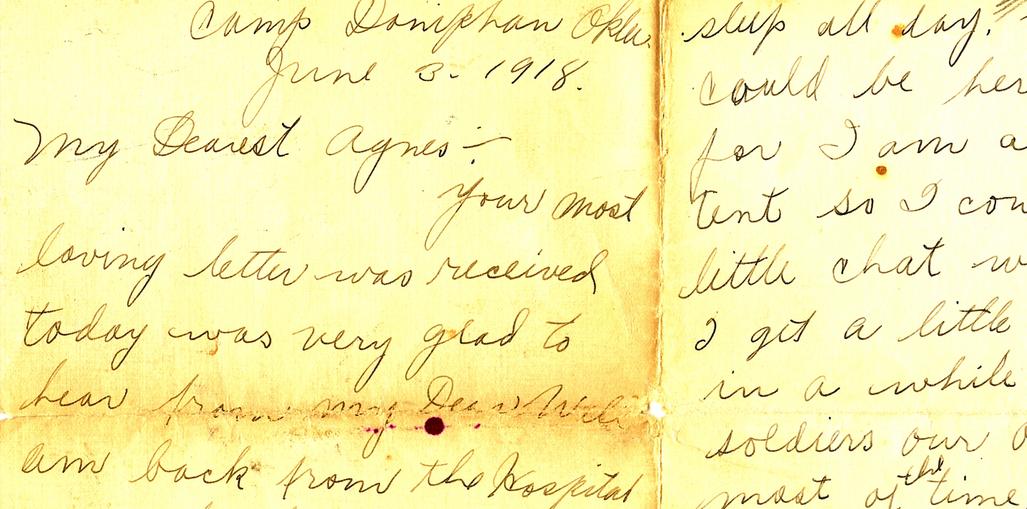 Camp Doniphan Okla.
June 3. 1918.
My Dearest Agnes:-
Your most
loving letter was received
today was very glad to
hear from my Dear
am back from the Hospital
sleep all day.
could be her
for I am a
tent so I cou
little chat w
I get a little
in a while
soldiers our o
most of the time